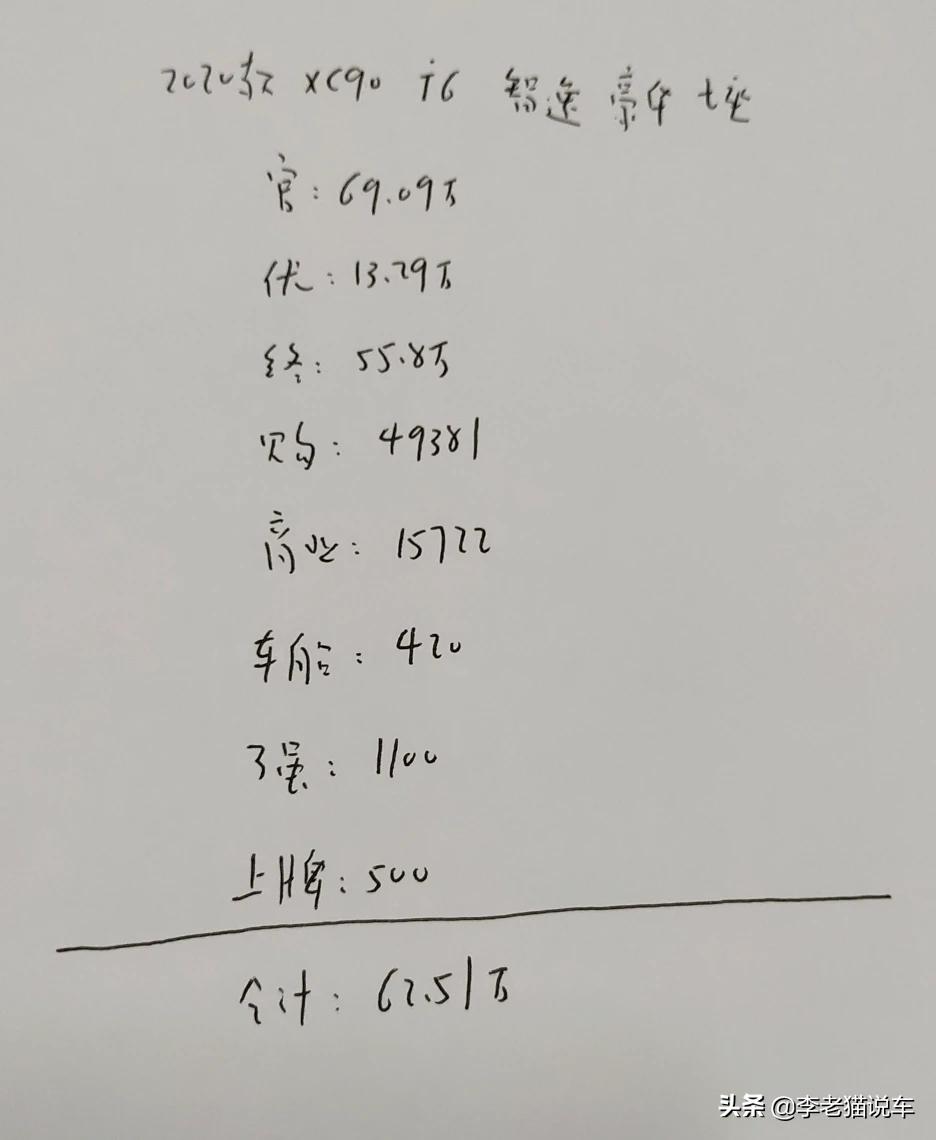 2020款 XC90 T6 智逸 豪华 七座
官：69.09万
优：13.29万
终：55.8万
购：49381
商业：15722
车船：420
了强：1100
上牌：500
合计：62.51万
头条 @李老猫说车